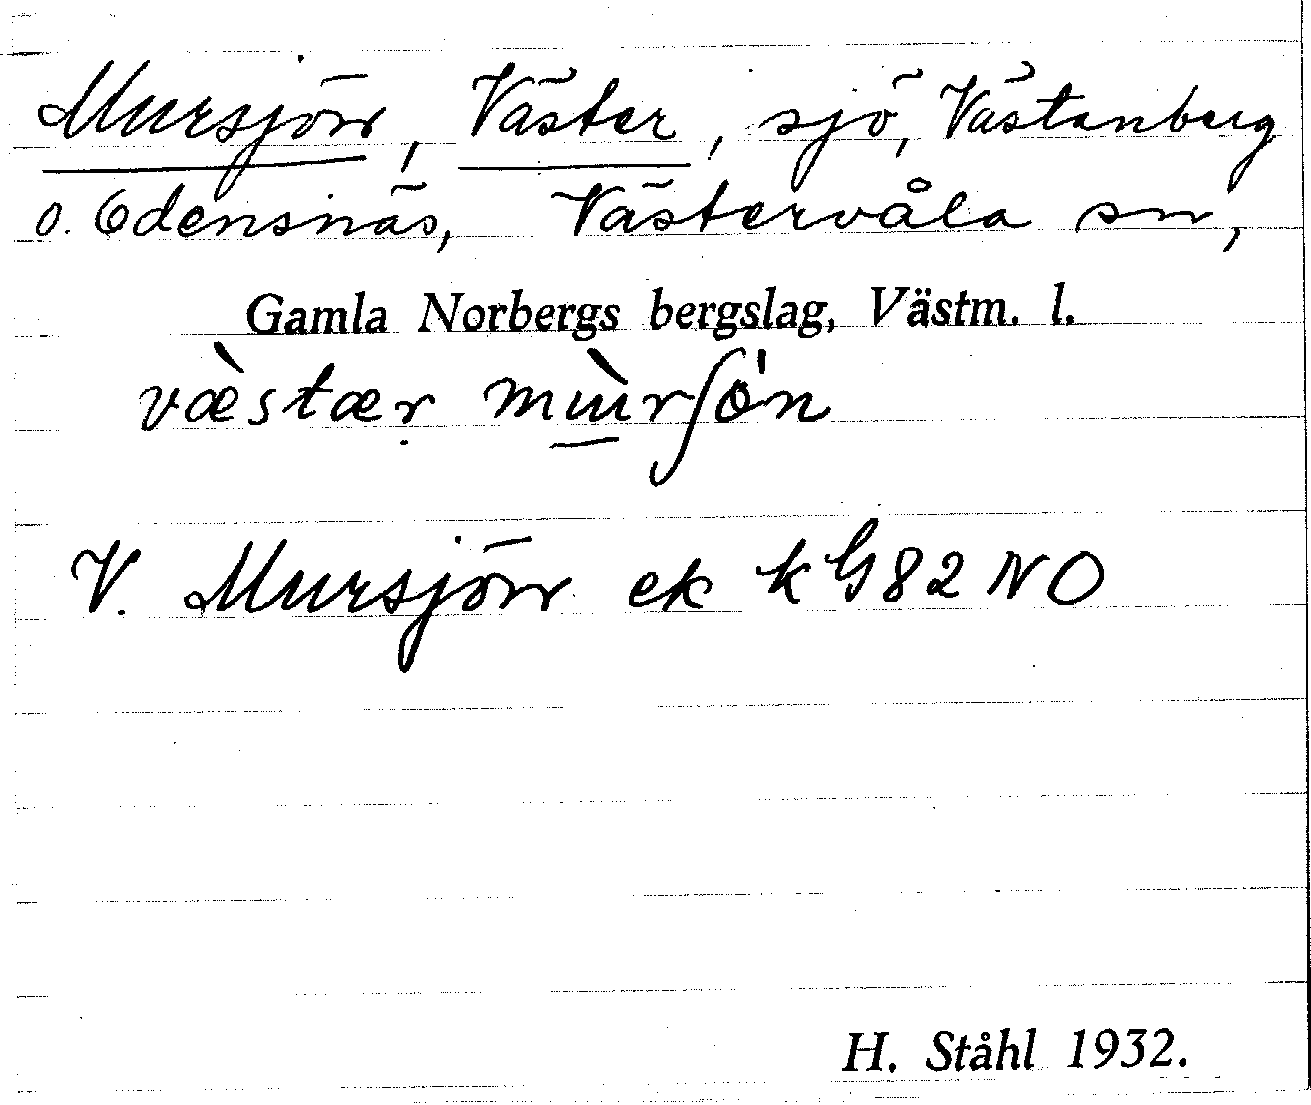 Mursjön, Väster, sjö, Västanberg
o. Edensnäs, Västervåla sn,
Gamla Norbergs bergslag, Västm. l.
væ̀stær mùrʃö́n
V. Mursjön ek k G82 NO
H. Ståhl 1932.